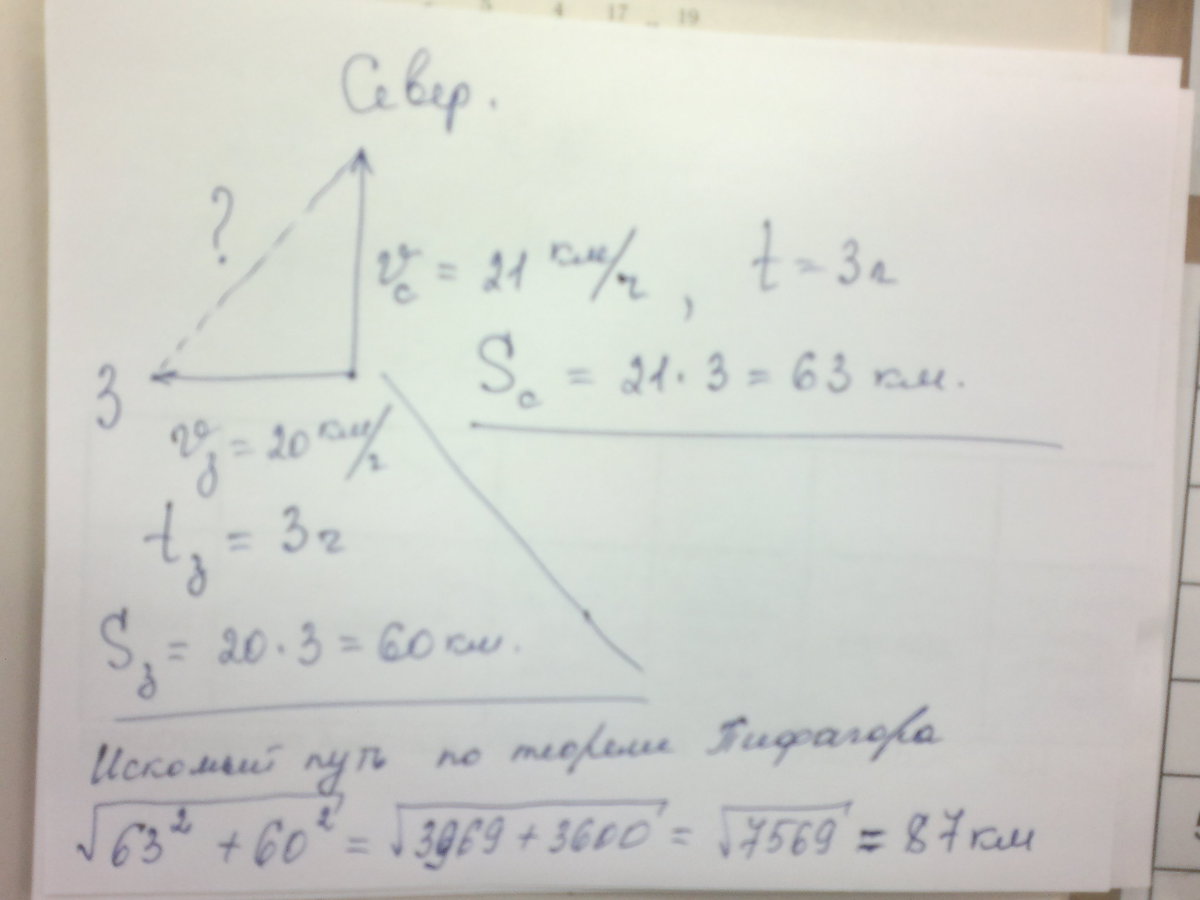 5 4 17 19
Север.
?
v_с = 21 км/ч, t = 3ч
S_с = 21 · 3 = 63 км.
З
v_з = 20 км/ч
t_з = 3ч
S_з = 20 · 3 = 60 км.
Искомый путь по теореме Пифагора
√63² + 60² = √3969 + 3600 = √7569 = 87 км